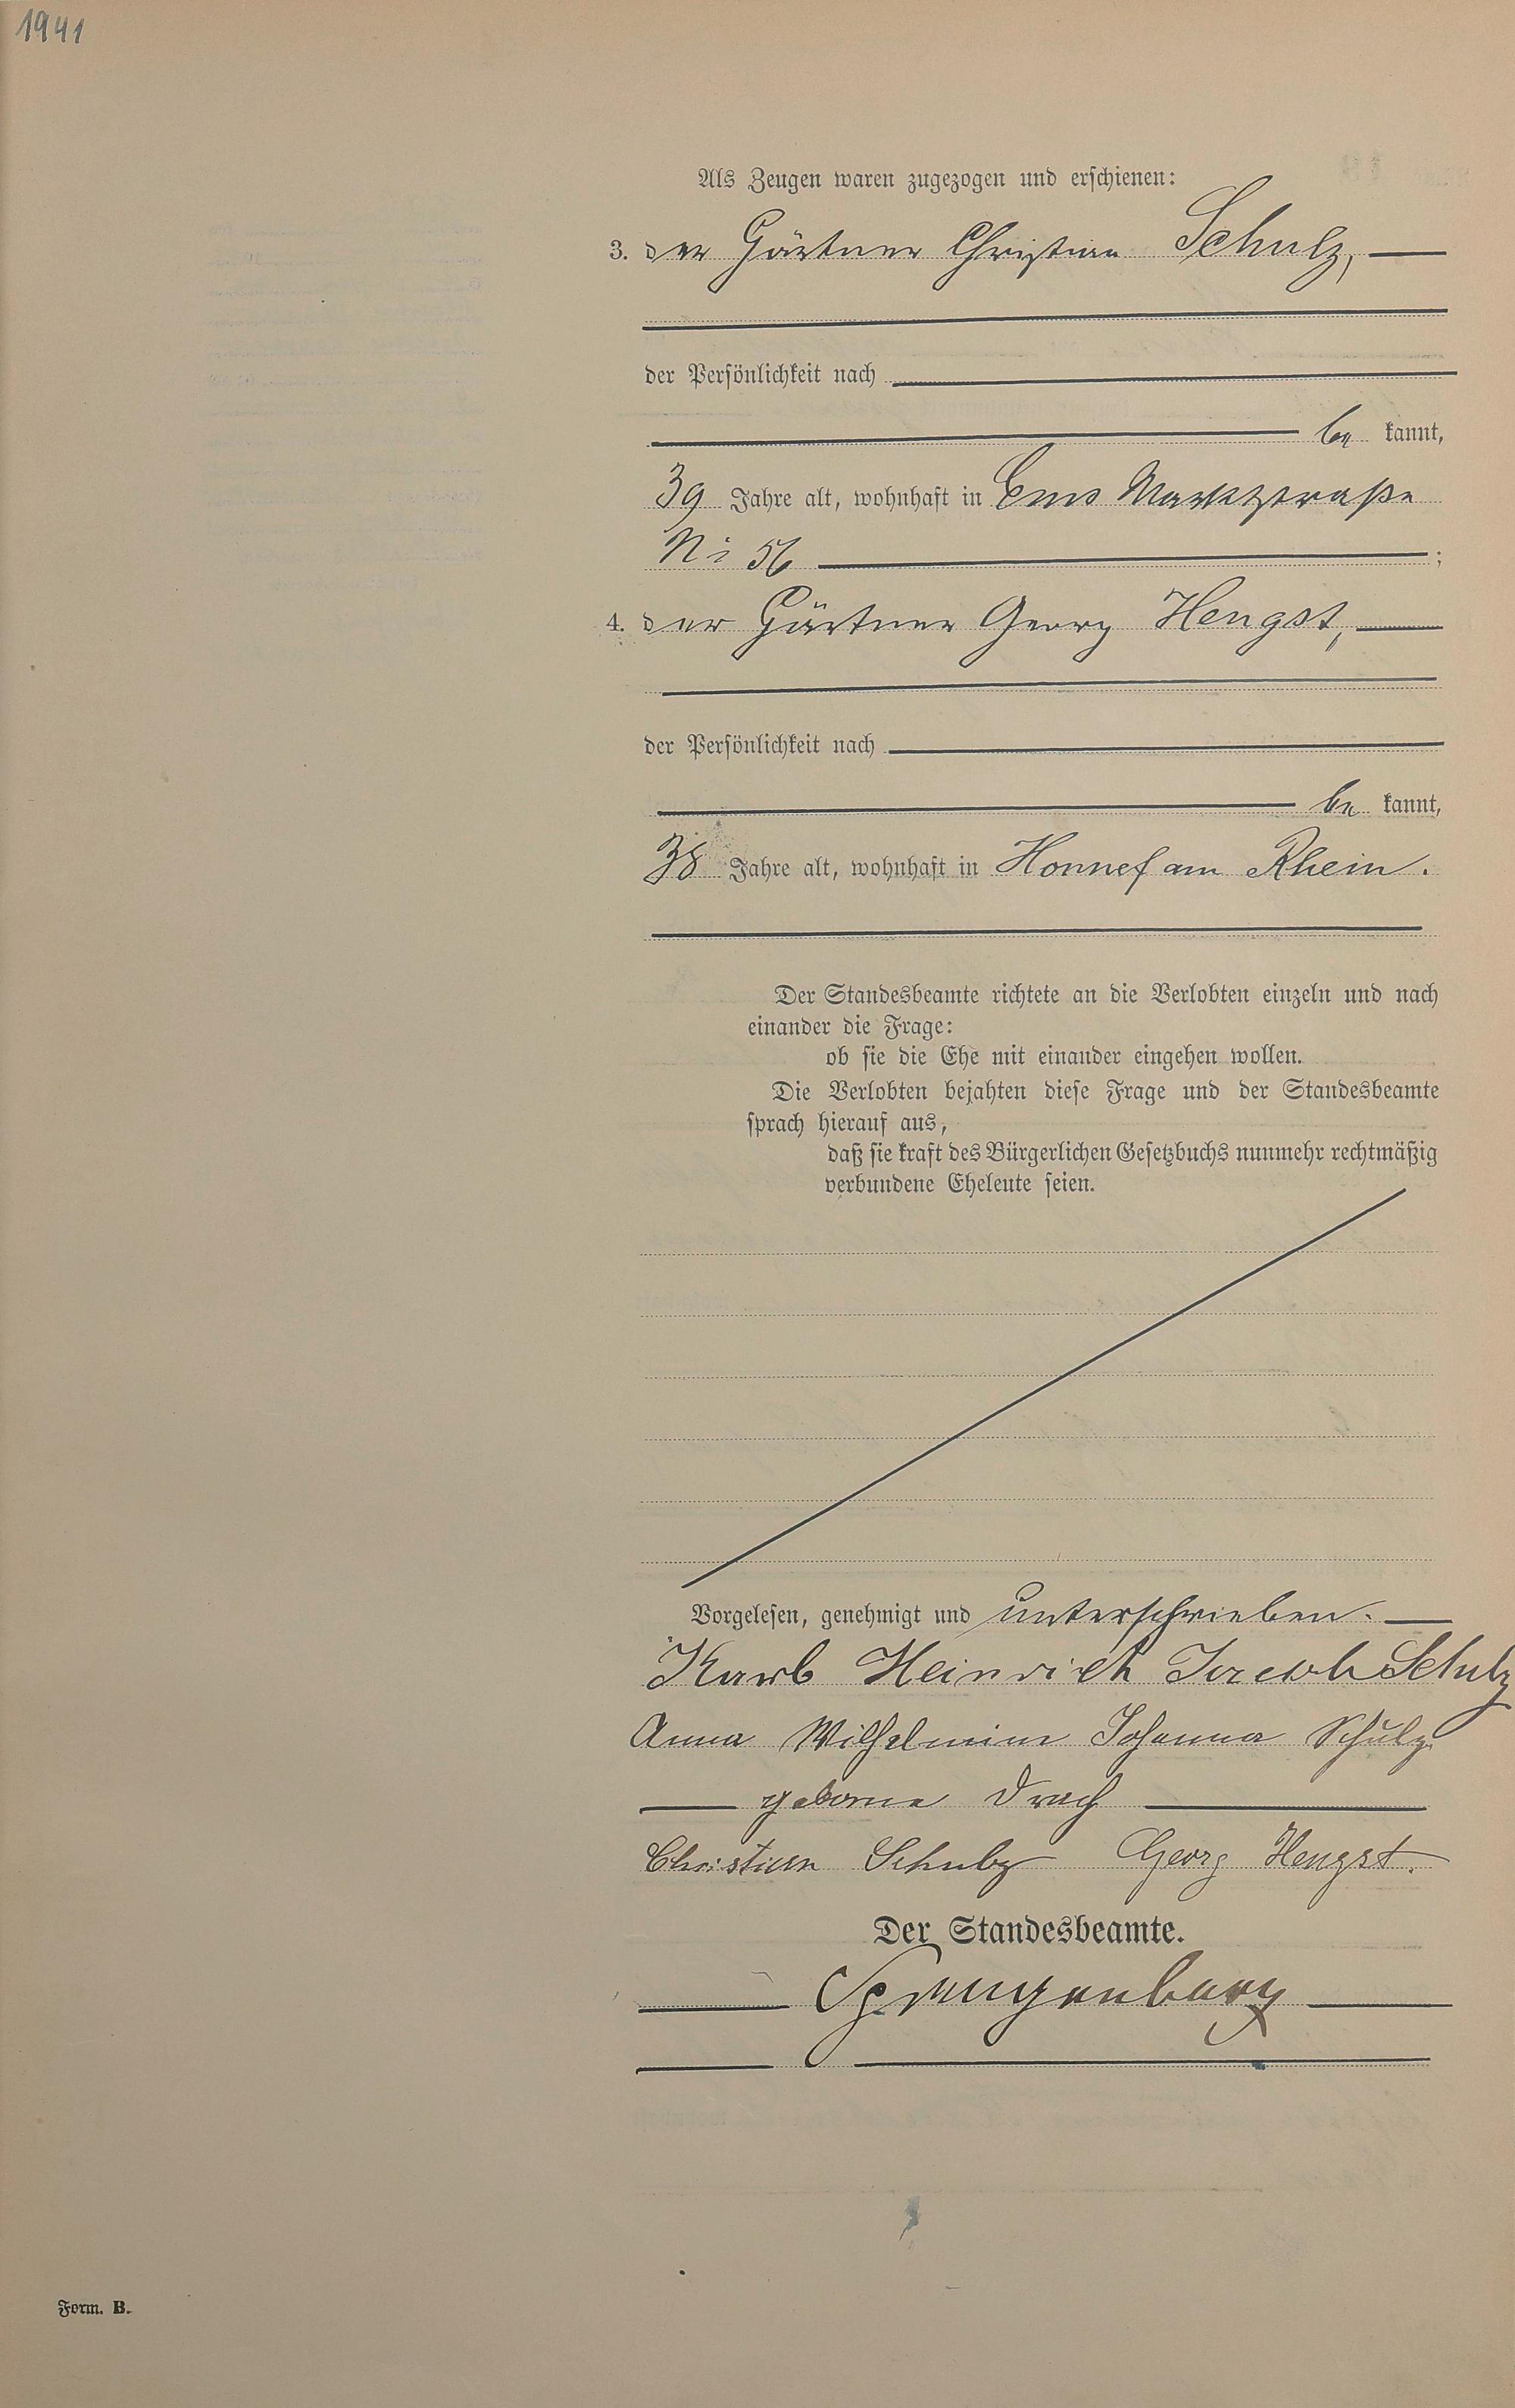 1941
Als Zeugen waren zugezogen und erschienen:
3. der Gärtner Christian Schulz,
der Persönlichkeit nach
be kannt,
39 Jahre alt, wohnhaft in Ems Marktstraße
No 56
;
4. der Gärtner Georg Hengst,
der Persönlichkeit nach
be kannt,
38 Jahre alt, wohnhaft in Honnef am Rhein.
Der Standesbeamte richtete an die Verlobten einzeln und nach
einander die Frage:
ob sie die Ehe mit einander eingehen wollen.
Die Verlobten bejahten diese Frage und der Standesbeamte
sprach hierauf aus,
daß sie kraft des Bürgerlichen Gesetzbuchs nunmehr rechtmäßig
verbundene Eheleute seien.
Vorgelesen, genehmigt und unterschrieben.
Karl Heinrich Jacob Schulz
Anna Wilhelmine Johanna Schulz
geborne Drach
Christian Schulz Georg Hengst.
Der Standesbeamte.
Form. B.